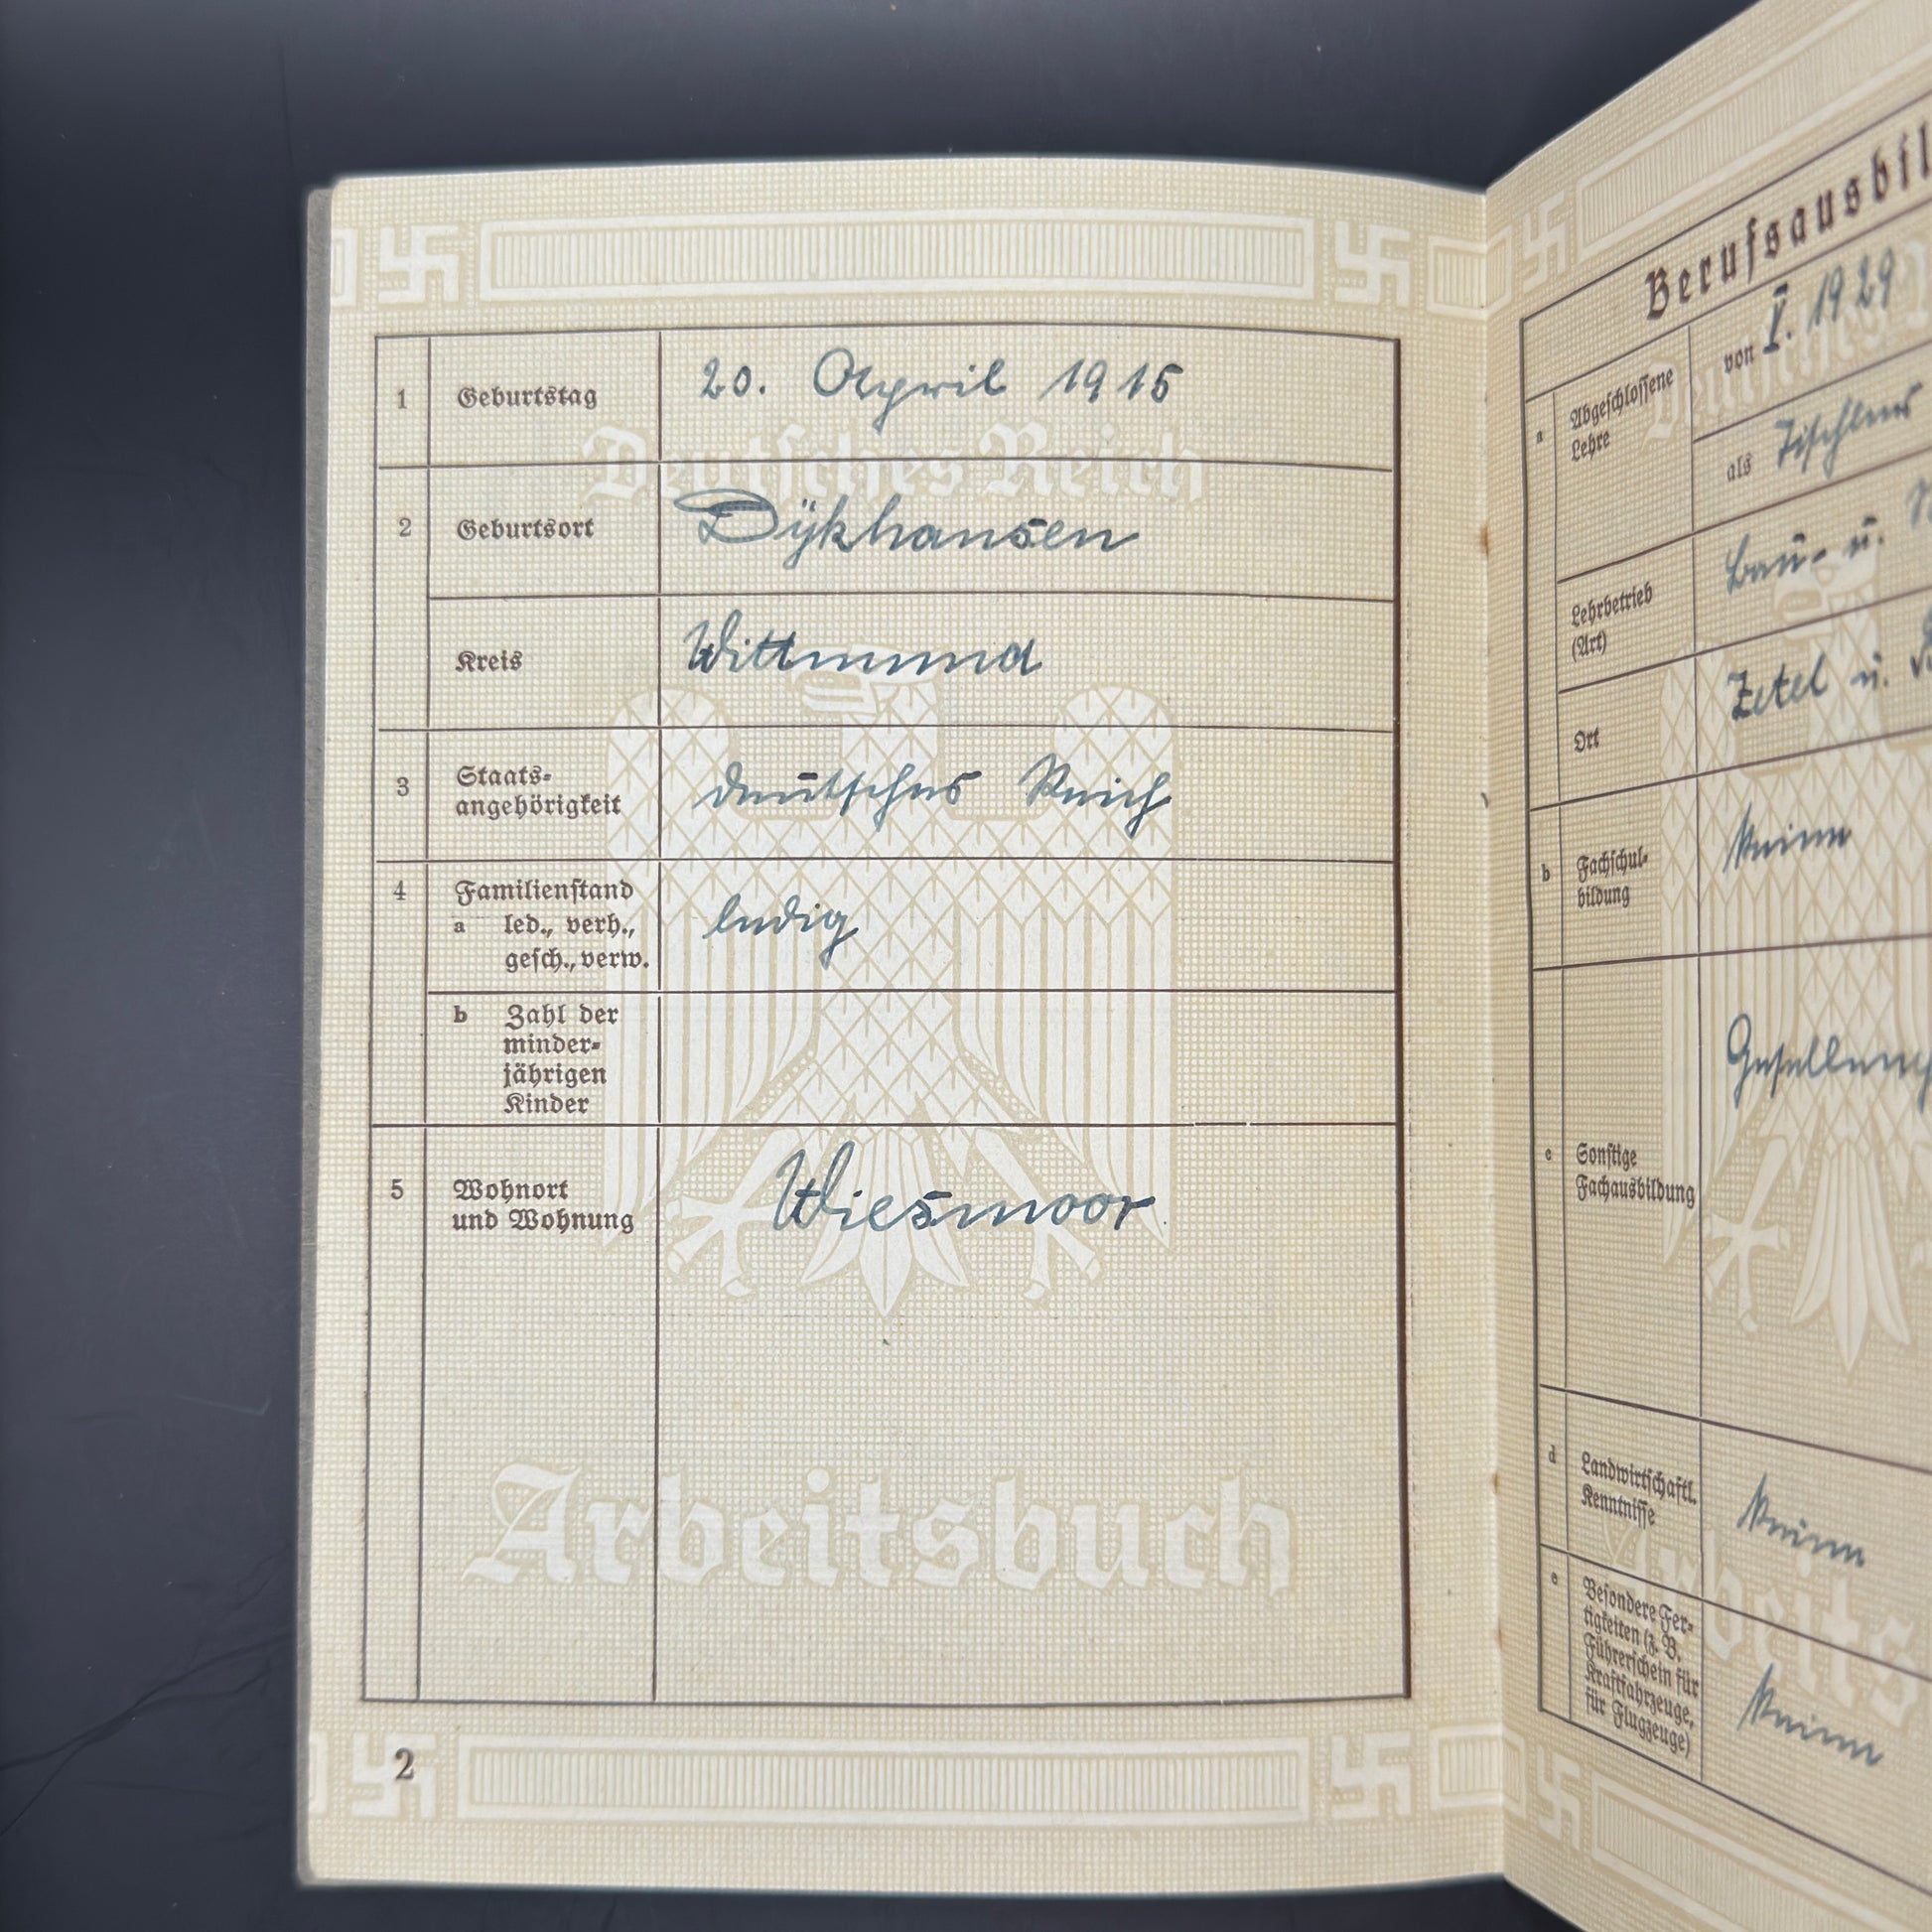 1 Geburtstag 20. April 1915
Deutsches Reich
2 Geburtsort Dykhausen
Kreis Wittmund
3 Staats-
angehörigkeit deutsches Reich
4 Familienstand
a led., verh.,
gesch., verw. ledig
b Zahl der
minder-
jährigen
Kinder
5 Wohnort
und Wohnung Wiesmoor
Arbeitsbuch
2
Berufsausbil
a Abgeschlossene
Lehre
von V. 1929
als Tischler
Lehrbetrieb
(Art) Bau- u.
Ort Zetel u.
b Fachschul-
bildung keine
c Sonstige
Fachausbildung
d Landwirtschaftl.
Kenntnisse keine
e Besondere Fer-
tigkeiten (z. B.
Führerschein für
Kraftfahrzeuge,
für Flugzeuge) keine
Arbeits